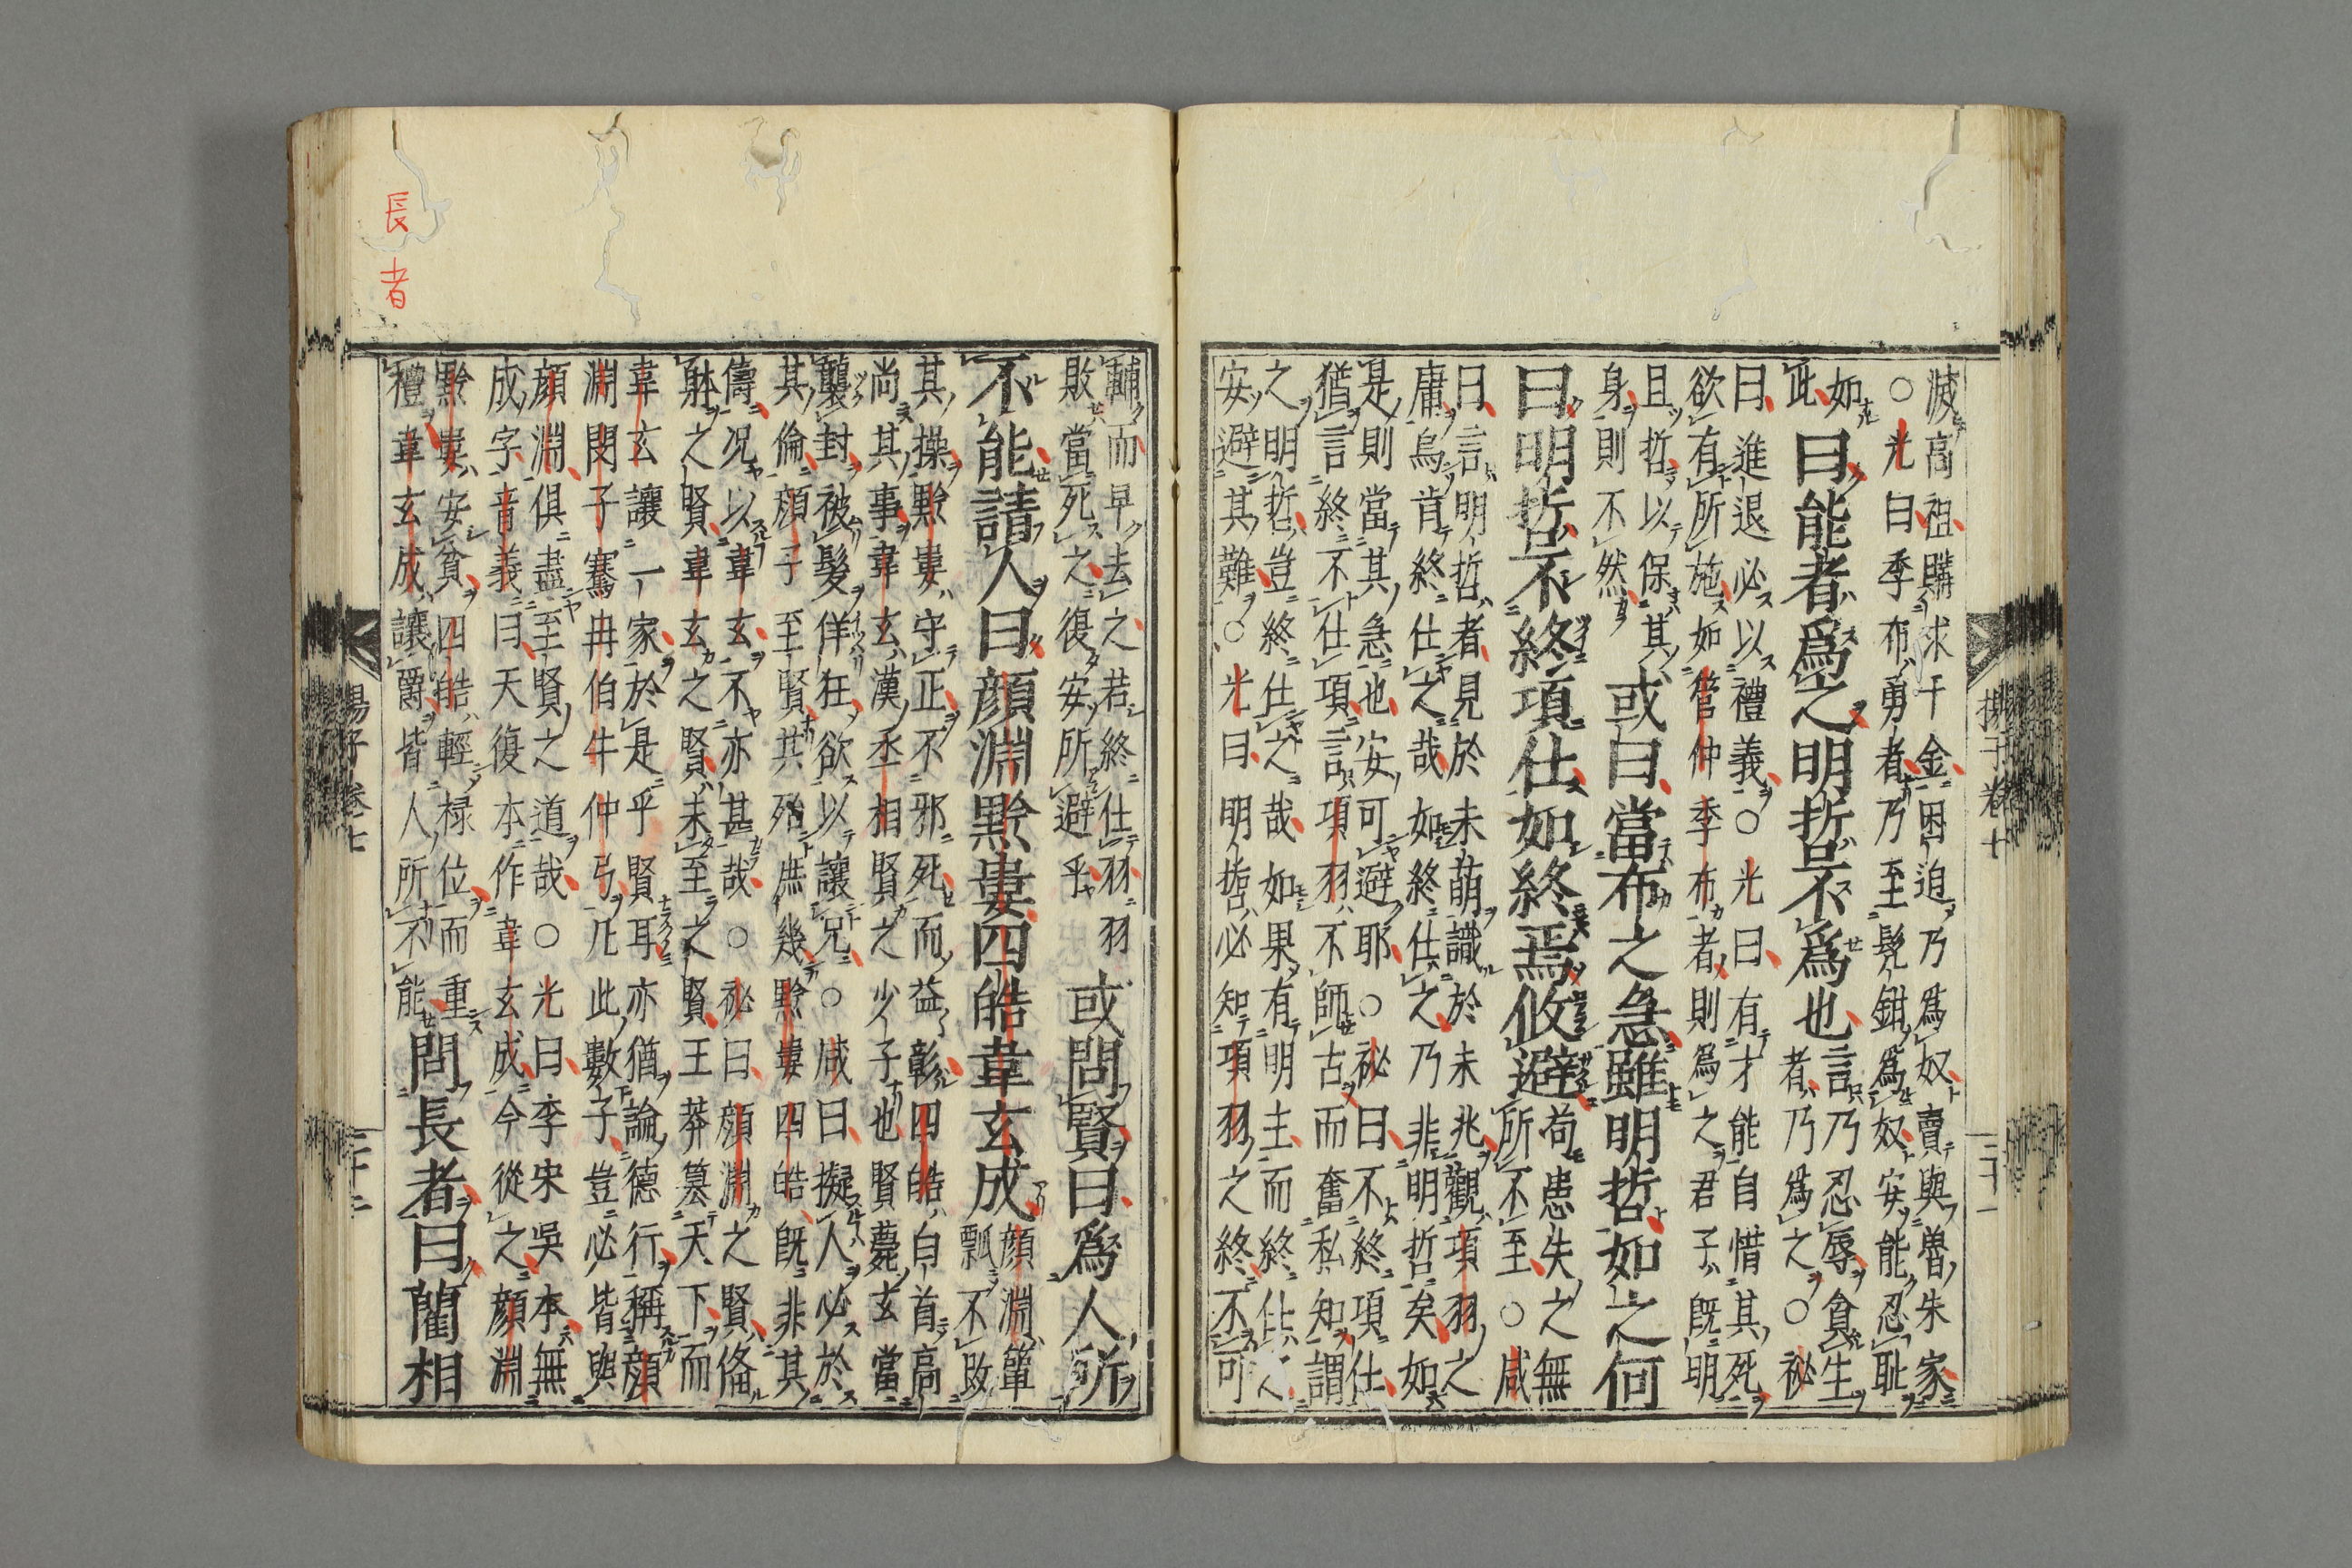 滅高祖購求千金困迫乃爲奴賣與魯朱家
○光曰季布勇者乃至髡鉗爲奴安能忍耻
如
此
曰能者爲之明哲不爲也
言乃忍辱貪生
者乃爲之○祕
曰進退必以禮義○光曰有才能自惜其死
欲有所施如管仲季布者則爲之君子既明
且哲以保其
身則不然
或曰當布之急雖明哲如之何
曰明哲不終項仕如終項仕焉攸避
苟患失之無
所不至○咸
曰言明哲者見於未萌識於未兆觀項羽之
庸烏肯終仕之哉如終仕之乃非明哲矣如
是則當其急也安可避耶○祕曰不終項仕
猶言終不仕項言項羽不師古而奮私知謂
之明哲豈終仕之哉如果有明主而終仕
安避其難○光曰明哲必知項羽之終不可
輔而早去之若終仕羽羽
敗當死之復安所避乎
或問賢曰爲人所
不能請人曰顔淵黔婁四皓韋玄成
顔淵簞
瓢不改
其操黔婁守正不邪死而益彰四皓白首高
尚其事韋玄漢丞相賢之少子也賢薨玄當
襲封被髮佯狂欲以讓兄○咸曰擬人必於
其倫顔子至賢共殆庶幾黔婁四皓既非其
儔况以韋玄不亦甚哉○祕曰顔淵之賢俻
躰之賢韋玄之賢未至之賢王莽簒天下而
韋玄讓一家於是乎賢耳亦猶論德行稱顔
淵閔子騫冉伯牛仲弓凡此數子豈必皆與
顔淵俱盡至賢之道哉○光曰李宋吳本無
成字音義曰天復本作韋玄成今從之顔淵
黔婁安貧四皓輕禄位而重
禮韋玄成讓爵皆人所不能
問長者曰藺相
長者
揚子卷七
三十二